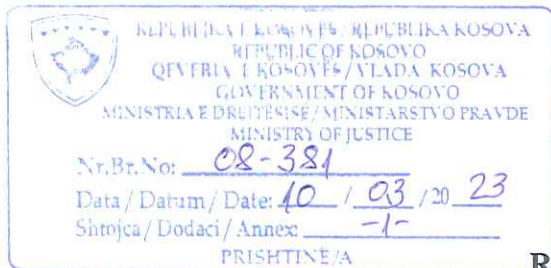 REPUBLIKA E KOSOVËS / REPUBLIKA KOSOVA
REPUBLIC OF KOSOVO
QEVERIA E KOSOVËS / VLADA KOSOVA
GOVERNMENT OF KOSOVO
MINISTRIA E DREJTËSISË / MINISTARSTVO PRAVDE
MINISTRY OF JUSTICE
Nr.Br.No: 08-381
Data / Datum / Date: 10 / 03 / 20 23
Shtojca / Dodaci / Annex: -1-
PRISHTINË/A
R